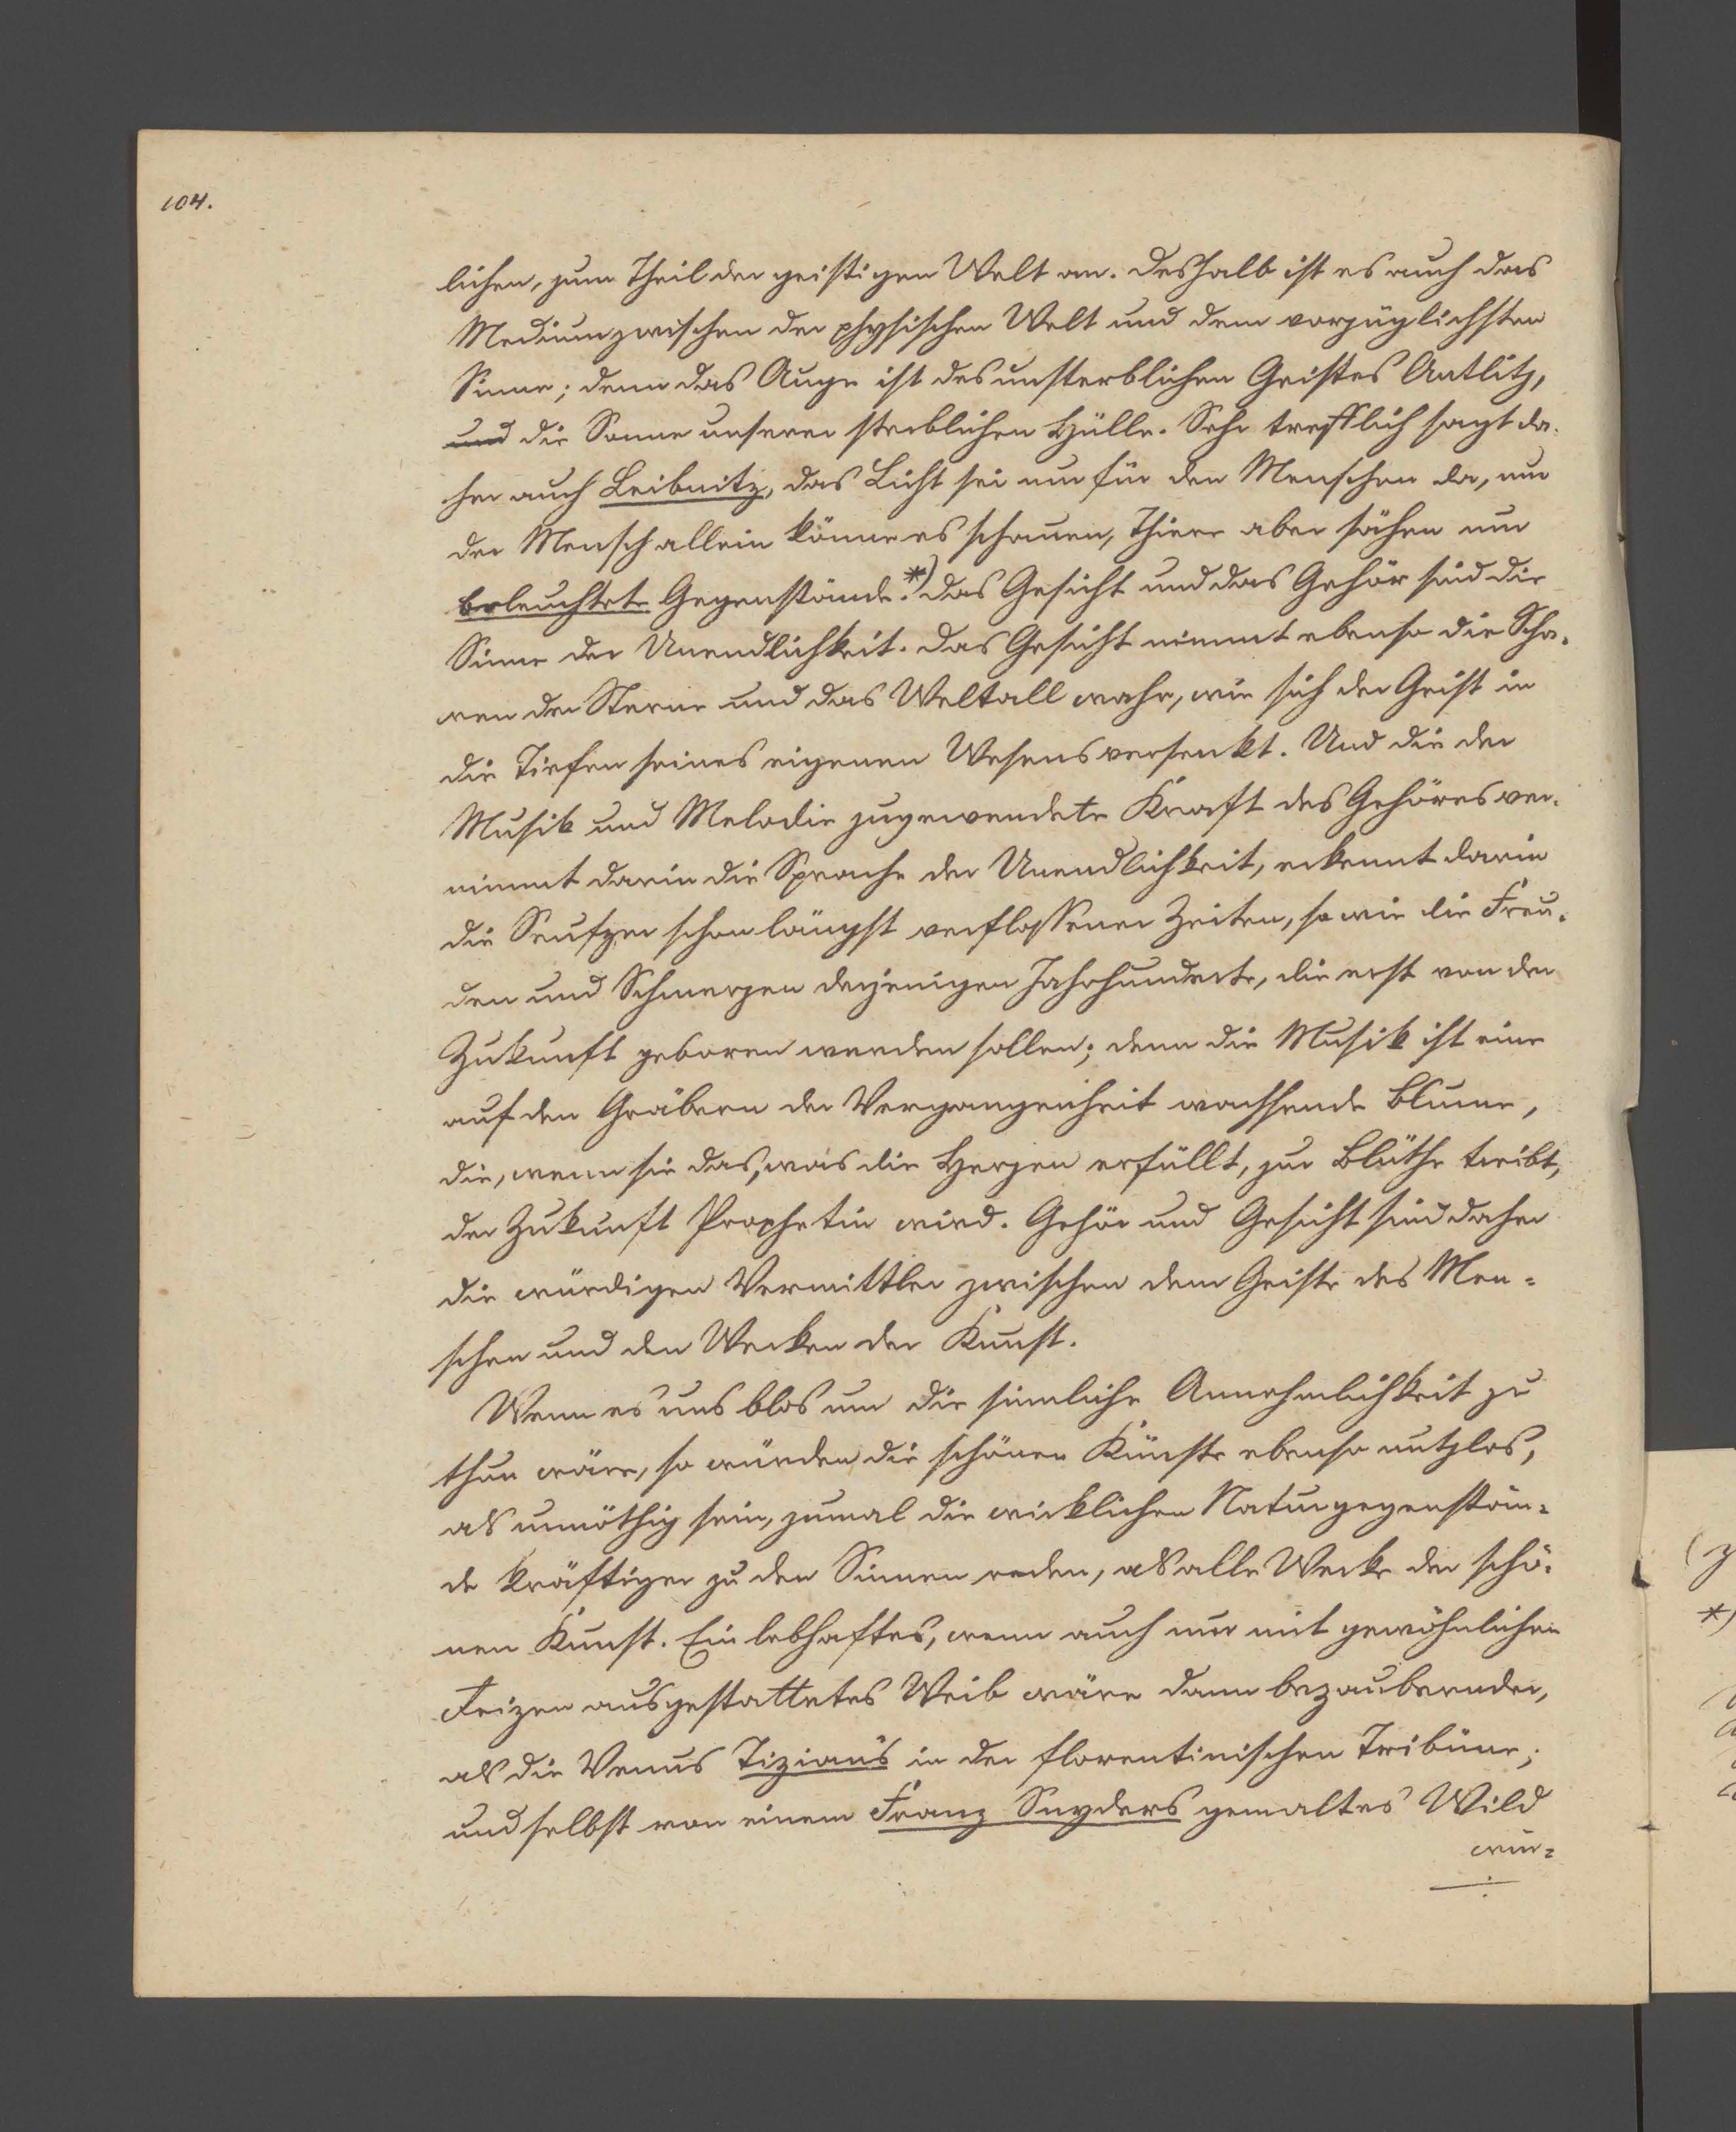 104.
lichen, zum Theil der geistigen Welt an. Deshalb ist es auch das
Medium zwischen der physischen Welt und dem vorzüglichsten
Sinne; denn das Auge ist des unsterblichen Geistes Antlitz,
und die Sonne unserer sterblichen Hülle. Sehr trefflich sagt da-
her auch Leibnitz, das Licht sei nur für den Menschen da, nur
der Mensch allein könne es schauen, Thiere aber sähen nur
beleuchtete Gegenstände.*) Das Gesicht und das Gehör sind die
Sinne der Unendlichkeit. Das Gesicht nimmt ebenso die Scha-
ren der Sterne und das Weltall wahr, wie sich der Geist in
die Tiefen seines eigenen Wesens versenkt. Und die der
Musik und Melodie zugewendete Kraft des Gehöres ver-
nimmt darin die Sprache der Unendlichkeit, erkennt darin
die Seufzer schon längst verflossener Zeiten, so wie die Freu-
den und Schmerzen derjenigen Jahrhunderte, die erst von der
Zukunft geboren werden sollen; denn die Musik ist eine
auf den Gräbern der Vergangenheit wachsende Blume,
die, wenn sie das, was die Herzen erfüllt, zur Blüthe treibt,
der Zukunft Prophetin wird. Gehör und Gesicht sind daher
die würdigen Vermittler zwischen dem Geiste des Men-
schen und den Werken der Kunst.
Wenn es uns blos um die sinnliche Annehmlichkeit zu
thun wäre, so würden die schönen Künste ebenso nutzlos,
als unnöthig sein, zumal die wirklichen Naturgegenstän-
de kräftiger zu den Sinnen reden, als alle Werke der schö-
nen Kunst. Ein lebhaftes, wenn auch nur mit gewöhnlichen
Reizen ausgestattetes Weib wäre dann bezaubernder,
als die Venus Tizian's in der florentinischen Tribüne;
und selbst von einem Franz Snyders gemaltes Wild
wür-